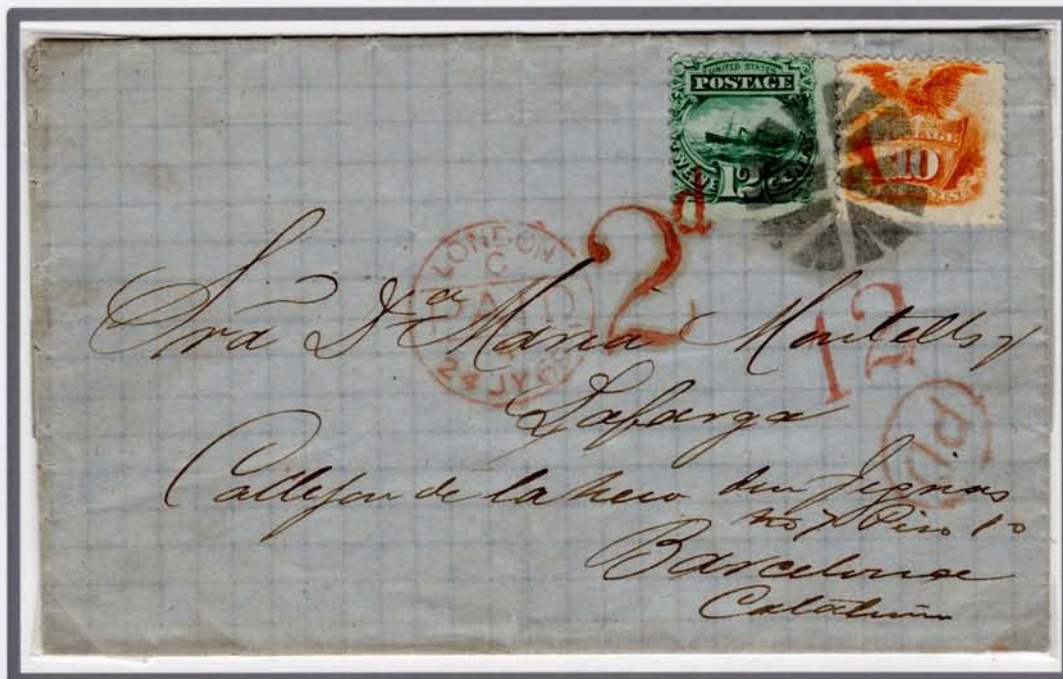 UNITED STATES
POSTAGE
TWELVE CENTS
12
10
2d
LONDON
C
PAID
24 JY 69
12
PD
Sra Da Maria Montells y
Lafarga
Callejon de la
no 7 Piso 1o
Barcelona
Cataluña